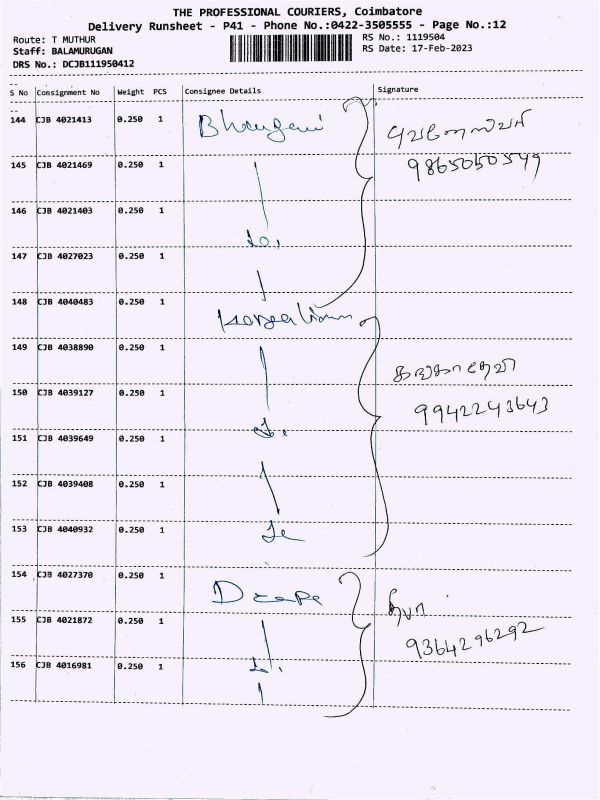 THE PROFESSIONAL COURIERS, Coimbatore
Delivery Runsheet - P41 - Phone No.:0422-3505555 - Page No.:12
Route: T MUTHUR
RS No.: 1119504
Staff: BALAMURUGAN
RS Date: 17-Feb-2023
DRS No.: DCJB111950412
S No Consignment No Weight PCS Consignee Details Signature
144 CJB 4021413 0.250 1
145 CJB 4021469 0.250 1 9865050549
146 CJB 4021403 0.250 1
147 CJB 4027023 0.250 1
148 CJB 4040483 0.250 1
149 CJB 4038890 0.250 1
150 CJB 4039127 0.250 1 9942243643
151 CJB 4039649 0.250 1
152 CJB 4039408 0.250 1
153 CJB 4040932 0.250 1
154 CJB 4027370 0.250 1 தீபா
155 CJB 4021872 0.250 1 9364296292
156 CJB 4016981 0.250 1